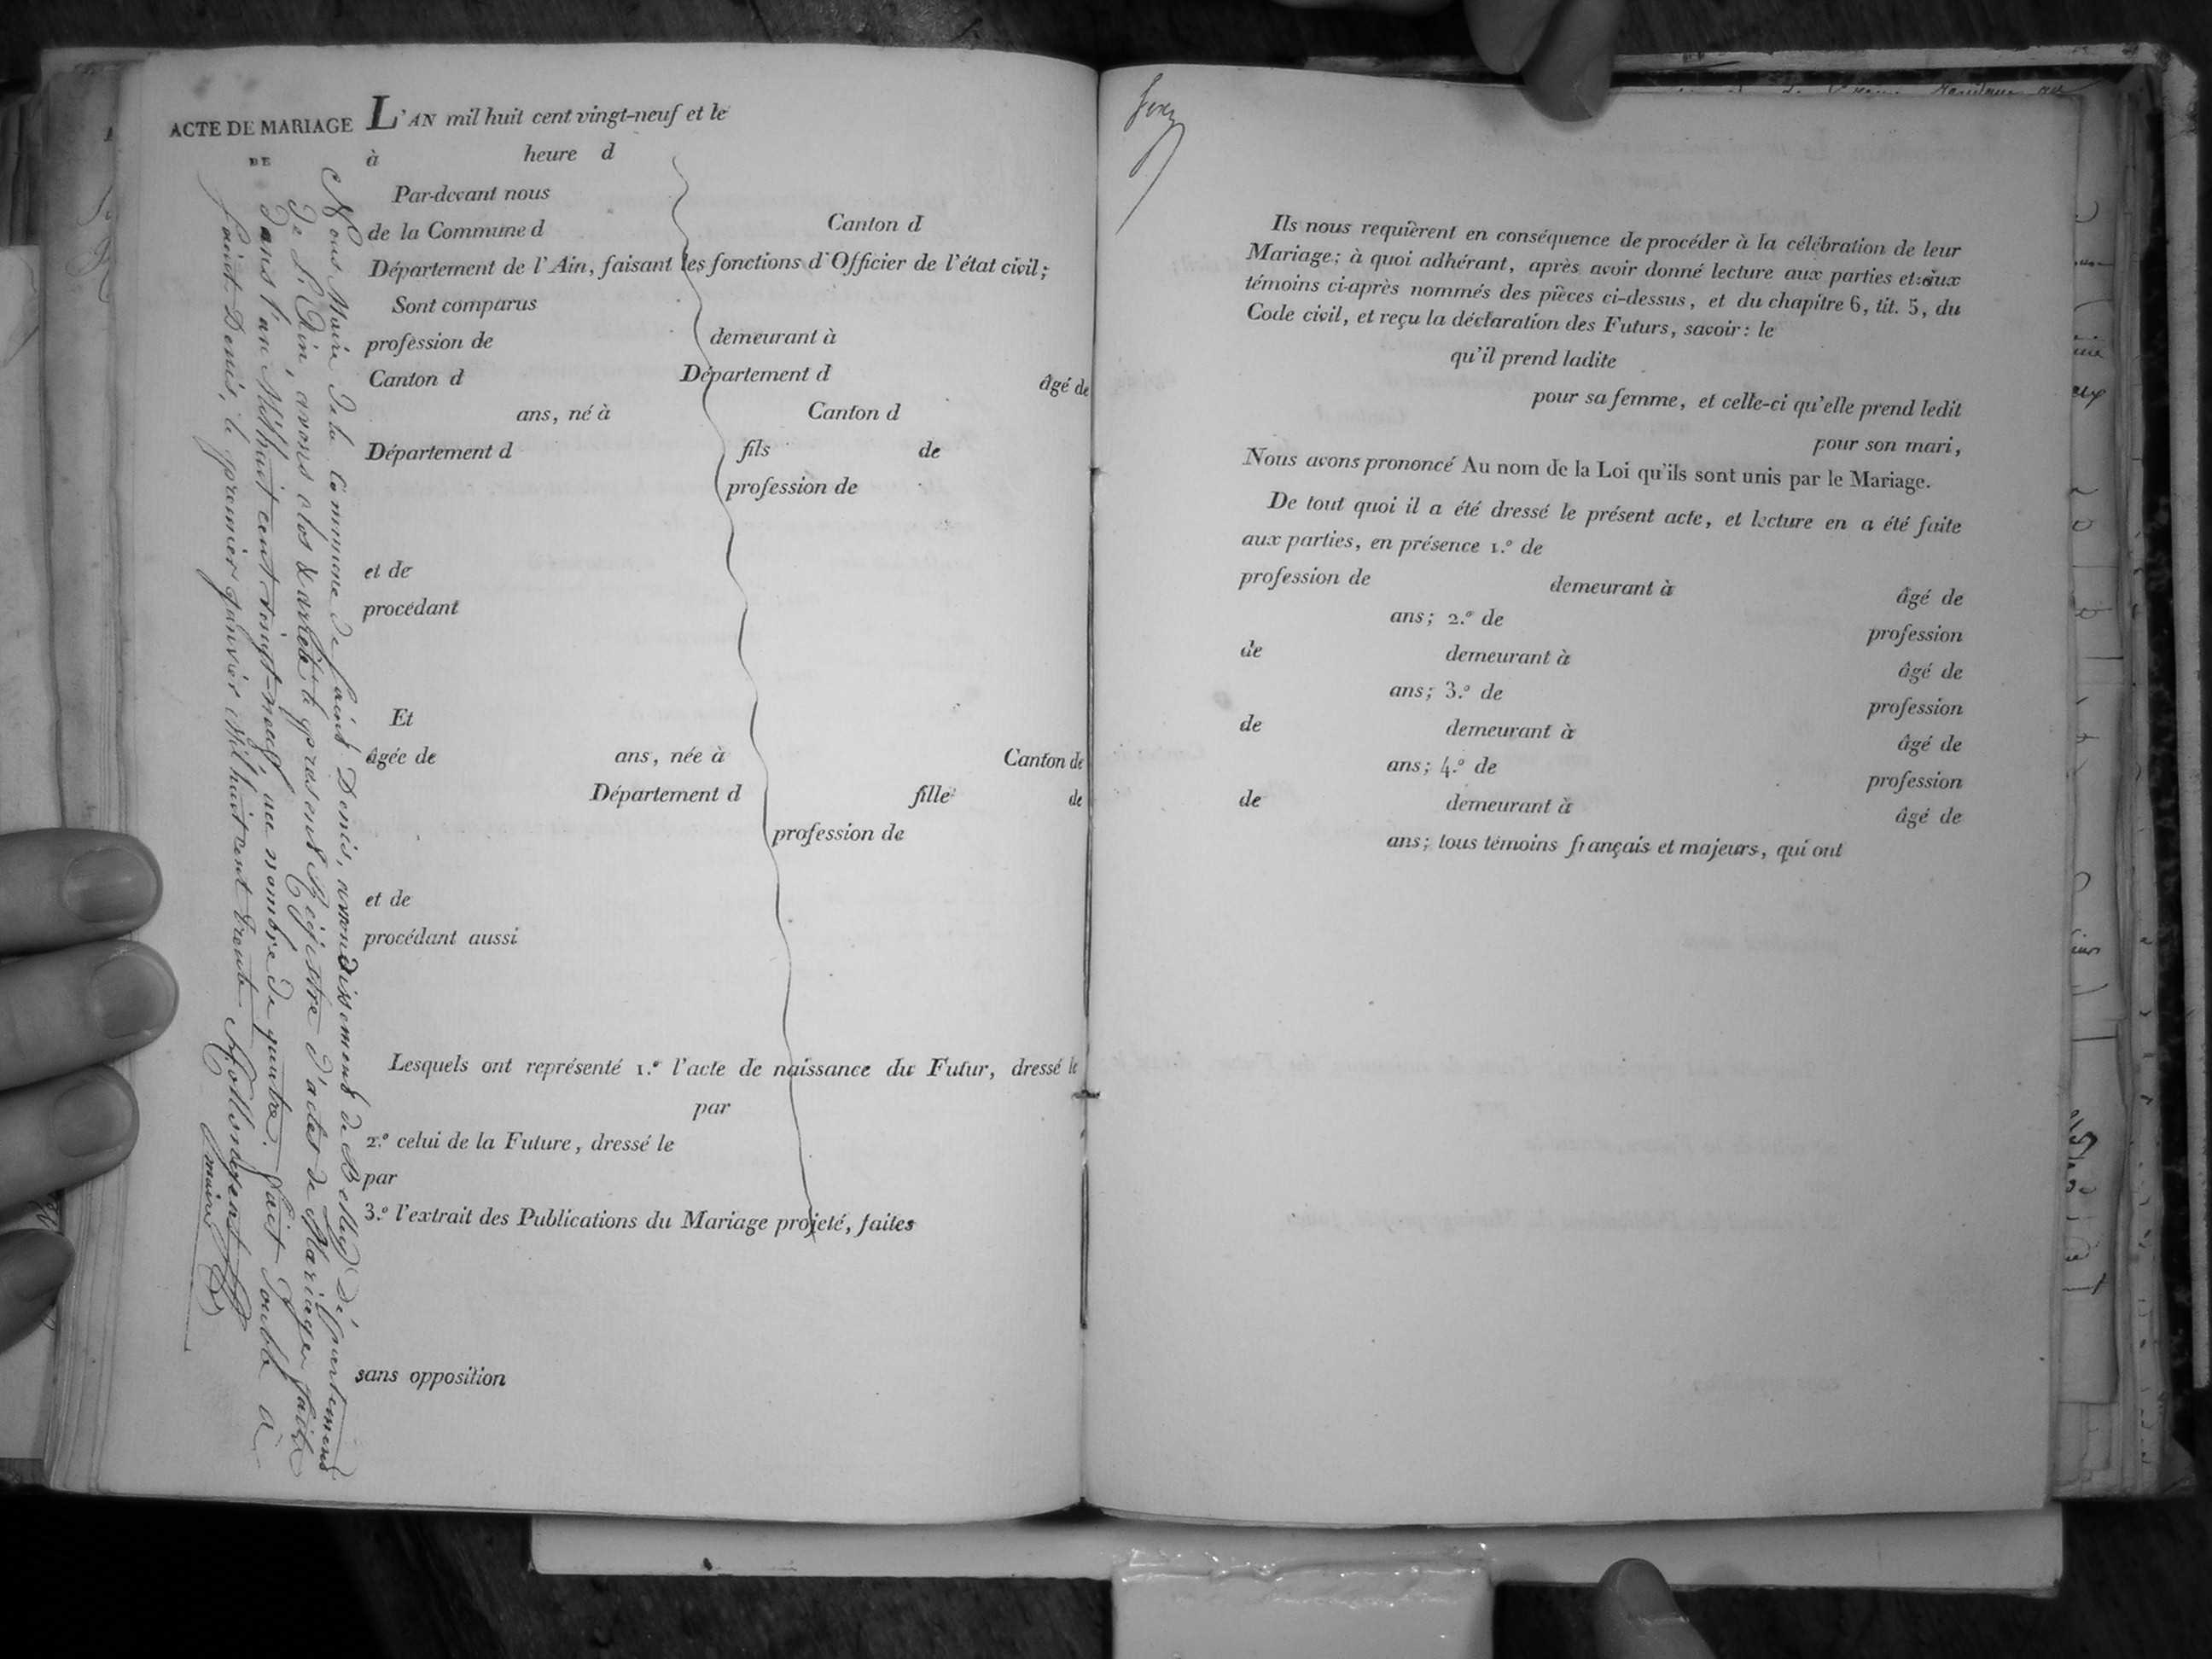 ACTE DE MARIAGE
DE
L'AN mil huit cent vingt-neuf et le
à heure d
Par-devant nous
de la Commune d Canton d
Département de l'Ain, faisant les fonctions d'Officier de l'état civil;
Sont comparus
profession de demeurant à
Canton d Département d âgé de
ans, né à Canton d
Département d fils de
profession de
et de
procédant
Et
âgée de ans, née à Canton de
Département d fille de
profession de
et de
procédant aussi
Lesquels ont représenté 1.º l'acte de naissance du Futur, dressé le
par
2.º celui de la Future, dressé le
par
3.º l'extrait des Publications du Mariage projeté, faites
sans opposition
Nous Maire de la Commune de saint Denis, arrondissement de Belley Département
de L'Ain, avons clos & arrêté le présent Régistre d'actes de Mariages faits
dans l'an Mil huit cent vingt-neuf, au nombre de quatre. fait double à
saint Denis, le premier janvier Mil huit cent trente
maire
Ils nous requièrent en conséquence de procéder à la célébration de leur
Mariage; à quoi adhérant, après avoir donné lecture aux parties et aux
témoins ci-après nommés des pièces ci-dessus, et du chapitre 6, tit. 5, du
Code civil, et reçu la déclaration des Futurs, savoir: le
qu'il prend ladite
pour sa femme, et celle-ci qu'elle prend ledit
pour son mari,
Nous avons prononcé Au nom de la Loi qu'ils sont unis par le Mariage.
De tout quoi il a été dressé le présent acte, et lecture en a été faite
aux parties, en présence 1.º de
profession de demeurant à âgé de
ans; 2.º de profession
de demeurant à âgé de
ans; 3.º de profession
de demeurant à âgé de
ans; 4.º de profession
de demeurant à âgé de
ans; tous témoins français et majeurs, qui ont